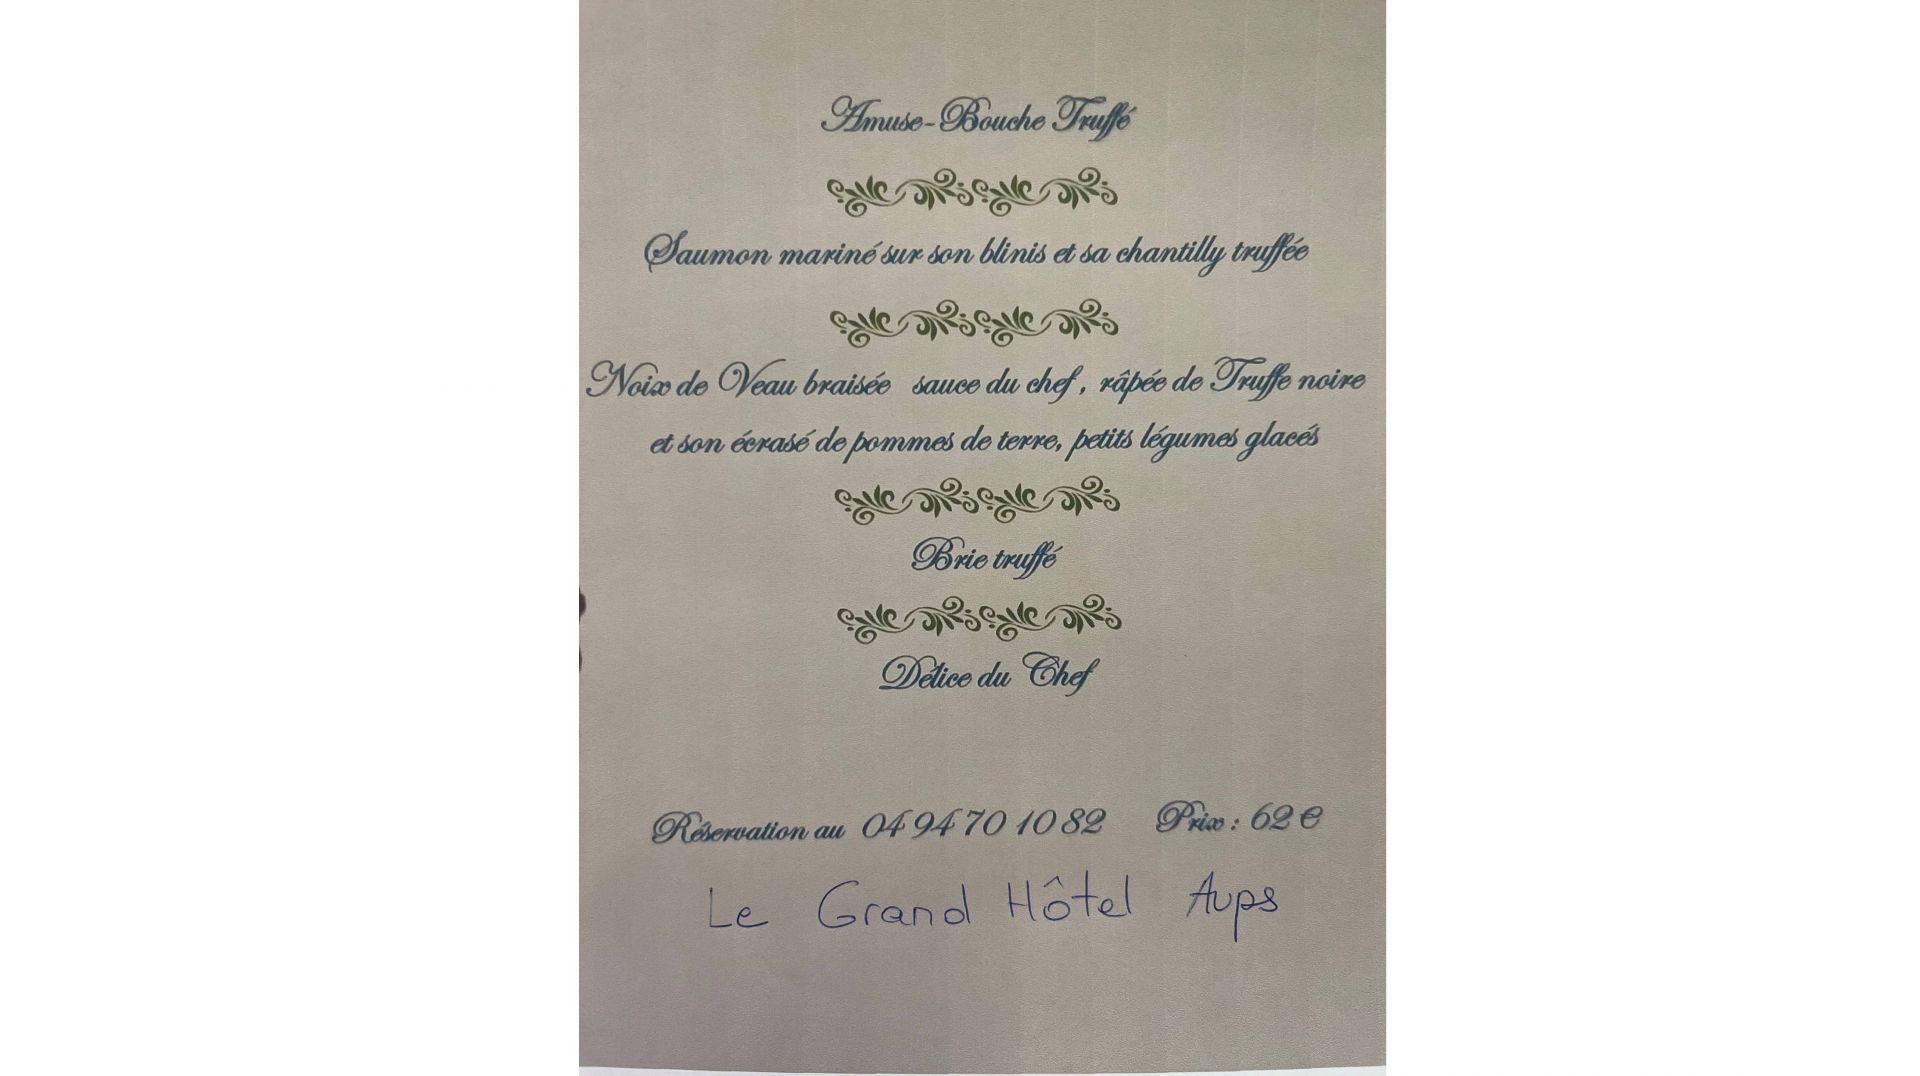 Amuse-Bouche Truffé
Saumon mariné sur son blinis et sa chantilly truffée
Noix de Veau braisée sauce du chef , râpée de Truffe noire
et son écrasé de pommes de terre, petits légumes glacés
Brie truffé
Délice du Chef
Réservation au 04 94 70 10 82 Prix : 62 €
Le Grand Hôtel Aups